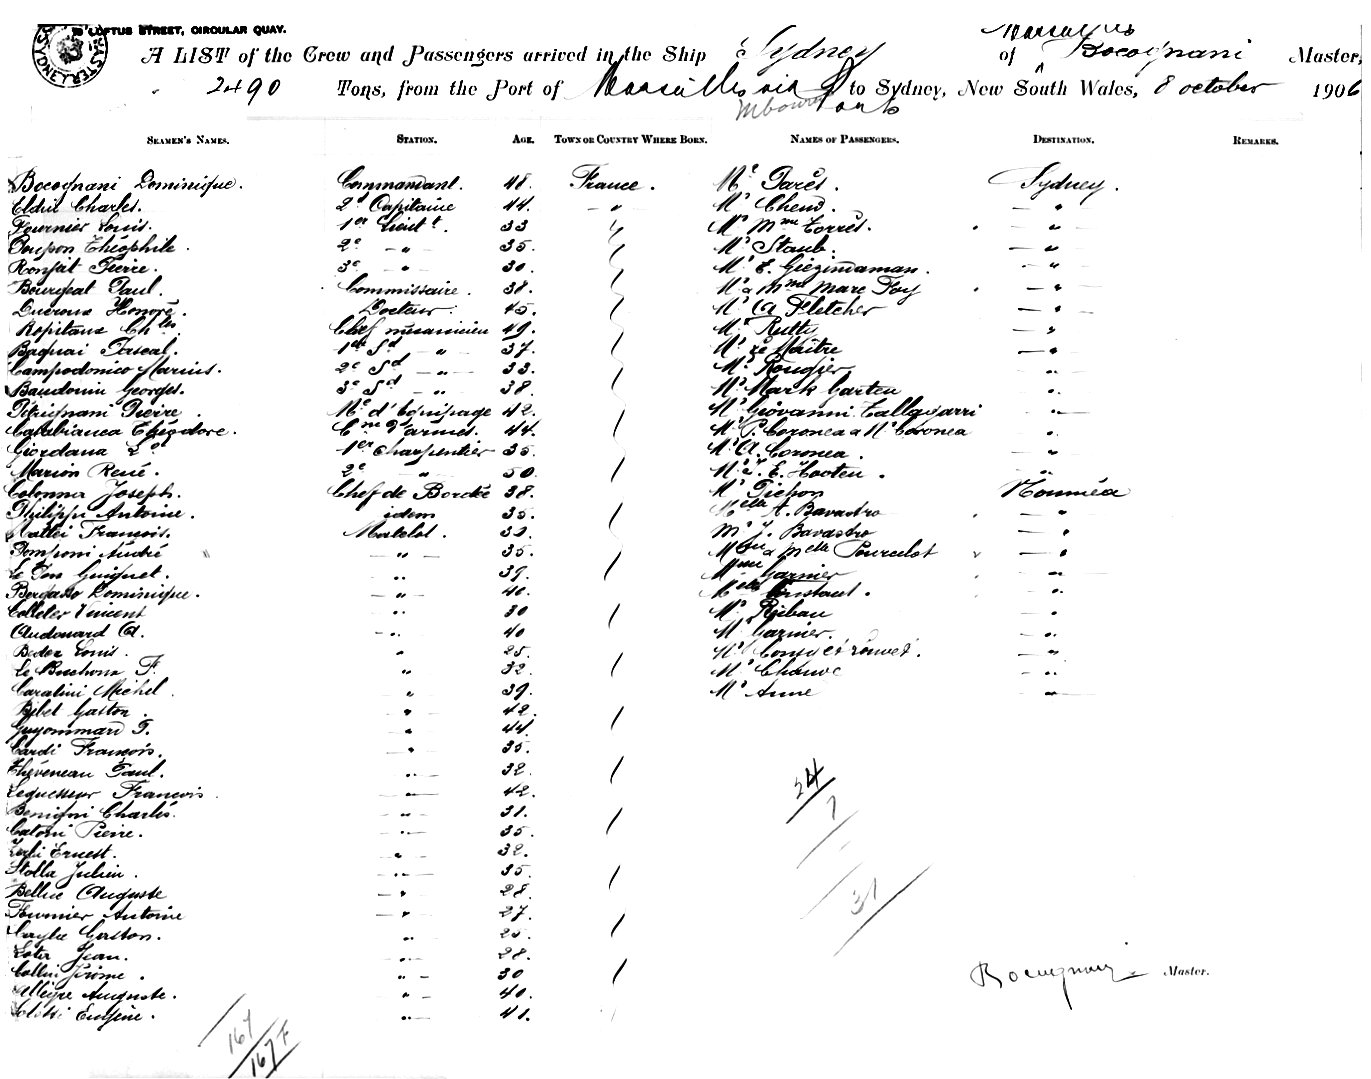 LOFTUS STREET, CIRCULAR QUAY.
Marseilles
A LIST of the Crew and Passengers arrived in the Ship Sydney of Bocognani Master,
2490 Tons, from the Port of Marseilles via Ports to Sydney, New South Wales, 8 october 1906
Mbourne
SEAMEN'S NAMES. STATION. AGE. TOWN OR COUNTRY WHERE BORN. NAMES OF PASSENGERS. DESTINATION. REMARKS.
Bocognani Dominique. Commandant. 48. France. Mr Parès. Sydney.
Eldin Charles. 2d Capitaine 44. — " — Mr — " —
Fournier Louis. 1er Lieutt. 33 " Mr Mme Torrès. — " —
Poupon Théophile. 2e — " — 35. " Mr Staub. — " —
Pierre. 3e — " — 30. " Mr E. — " —
Bourgeat Paul. Commissaire. 38. " Mr & Mme Marc Foy — " —
Ducroux Honoré. Docteur. 45. " Mr A Fletcher — " —
Ropitaux Chles. Chef mécanicien 49. " Mr Rutty — " —
Pascal. 1er Sd — " — 37. " Mr Le Maître — " —
Campodonico Marius. 2e Sd — " — 33. " Mr Rougier — " —
Baudouin Georges. 3e Sd — " — 38. " Mr Mark Carten — " —
Pierre. Me d'Equipage 42. " Mr Giovanni — " —
Casabianca Théodore. Cne d'armes. 44. " Mr P. Coronea & Mr Coronea "
Giordana Ls 1er Charpentier 35. " Mr A. Coronea. "
Marion René. 2e " 50. " Mr J. E. Hooten. "
Colonna Joseph. Chef de Bordée 38. " Mr Pichon Nouméa
Philippi Antoine. idem 35. " Melle A. Bavastro "
Mattei François. Matelot. 32. " Mr J. Bavastro — "
Pomponi André " 35. " Mme & Melle Pourcelot — "
Guiguet. " 39. " Mme Garnier — " —
Dominique. — " — 40. " Melle Constant. — " —
Vincent " 30 " Mr Ruban — " —
Audouard A. — " 40 " Mr Garnier. — " —
Bedex Louis. " 25. " Mr — " —
F. " 32. " Mr — " —
Michel. " 39. " Mr Anne — " —
Bibet Gaston. " 42. "
Guyommard F. " 44. "
Cardi François. " 35. "
Théveneau Paul. " 32. "
François. " 42. "
Benigni Charles. " 31. "
Catoni Pierre. " 35. "
Ernest. " 32. "
Stolla Julien. " 35. "
Auguste " 28. "
Fournier Antoine " 27. "
Gaston. " 25. "
Jean. " 28. "
Jérôme. " 30 "
Allègre Auguste. " 40. "
Eugène. " 41. "
24
7
31
Bocognani Master.
167
167 F